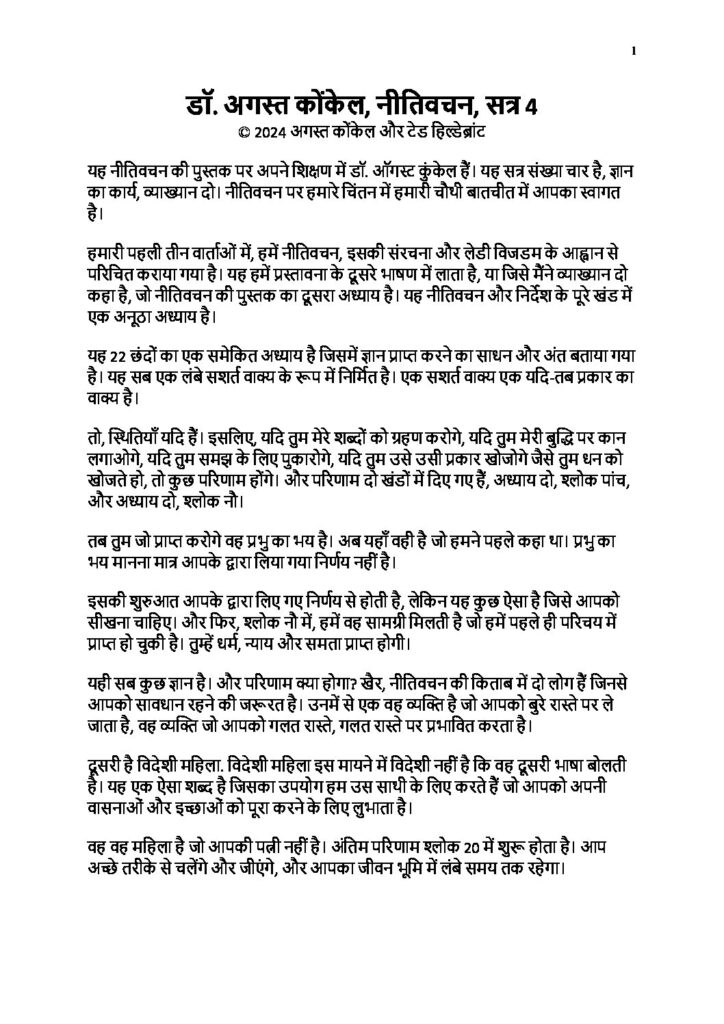 1
डॉ. अगस्त कोंकेल, नीतिवचन, सत्र 4
© 2024 अगस्त कोंकेल और टेड हिल्डेब्रांट
यह नीतिवचन की पुस्तक पर अपने शिक्षण में डॉ. ऑगस्ट कुंकेल हैं। यह सत्र संख्या चार है, ज्ञान
का कार्य, व्याख्यान दो। नीतिवचन पर हमारे चिंतन में हमारी चौथी बातचीत में आपका स्वागत
है।
हमारी पहली तीन वार्ताओं में, हमें नीतिवचन, इसकी संरचना और लेडी विजडम के आह्वान से
परिचित कराया गया है। यह हमें प्रस्तावना के दूसरे भाषण में लाता है, या जिसे मैंने व्याख्यान दो
कहा है, जो नीतिवचन की पुस्तक का दूसरा अध्याय है। यह नीतिवचन और निर्देश के पूरे खंड में
एक अनूठा अध्याय है।
यह 22 छंदों का एक समेकित अध्याय है जिसमें ज्ञान प्राप्त करने का साधन और अंत बताया गया
है। यह सब एक लंबे सशर्त वाक्य के रूप में निर्मित है। एक सशर्त वाक्य एक यदि-तब प्रकार का
वाक्य है।
तो, स्थितियाँ यदि हैं। इसलिए, यदि तुम मेरे शब्दों को ग्रहण करोगे, यदि तुम मेरी बुद्धि पर कान
लगाओगे, यदि तुम समझ के लिए पुकारोगे, यदि तुम उसे उसी प्रकार खोजोगे जैसे तुम धन को
खोजते हो, तो कुछ परिणाम होंगे। और परिणाम दो खंडों में दिए गए हैं, अध्याय दो, श्लोक पांच,
और अध्याय दो, श्लोक नौ।
तब तुम जो प्राप्त करोगे वह प्रभु का भय है। अब यहाँ वही है जो हमने पहले कहा था। प्रभु का
भय मानना मात्र आपके द्वारा लिया गया निर्णय नहीं है।
इसकी शुरुआत आपके द्वारा लिए गए निर्णय से होती है, लेकिन यह कुछ ऐसा है जिसे आपको
सीखना चाहिए। और फिर, श्लोक नौ में, हमें वह सामग्री मिलती है जो हमें पहले ही परिचय में
प्राप्त हो चुकी है। तुम्हें धर्म, न्याय और समता प्राप्त होगी।
यही सब कुछ ज्ञान है। और परिणाम क्या होगा? खैर, नीतिवचन की किताब में दो लोग हैं जिनसे
आपको सावधान रहने की जरूरत है। उनमें से एक वह व्यक्ति है जो आपको बुरे रास्ते पर ले
जाता है, वह व्यक्ति जो आपको गलत रास्ते, गलत रास्ते पर प्रभावित करता है।
दूसरी है विदेशी महिला. विदेशी महिला इस मायने में विदेशी नहीं है कि वह दूसरी भाषा बोलती
है। यह एक ऐसा शब्द है जिसका उपयोग हम उस साथी के लिए करते हैं जो आपको अपनी
वासनाओं और इच्छाओं को पूरा करने के लिए लुभाता है।
वह वह महिला है जो आपकी पत्नी नहीं है। अंतिम परिणाम श्लोक 20 में शुरू होता है। आप
अच्छे तरीके से चलेंगे और जीएंगे, और आपका जीवन भूमि में लंबे समय तक रहेगा।